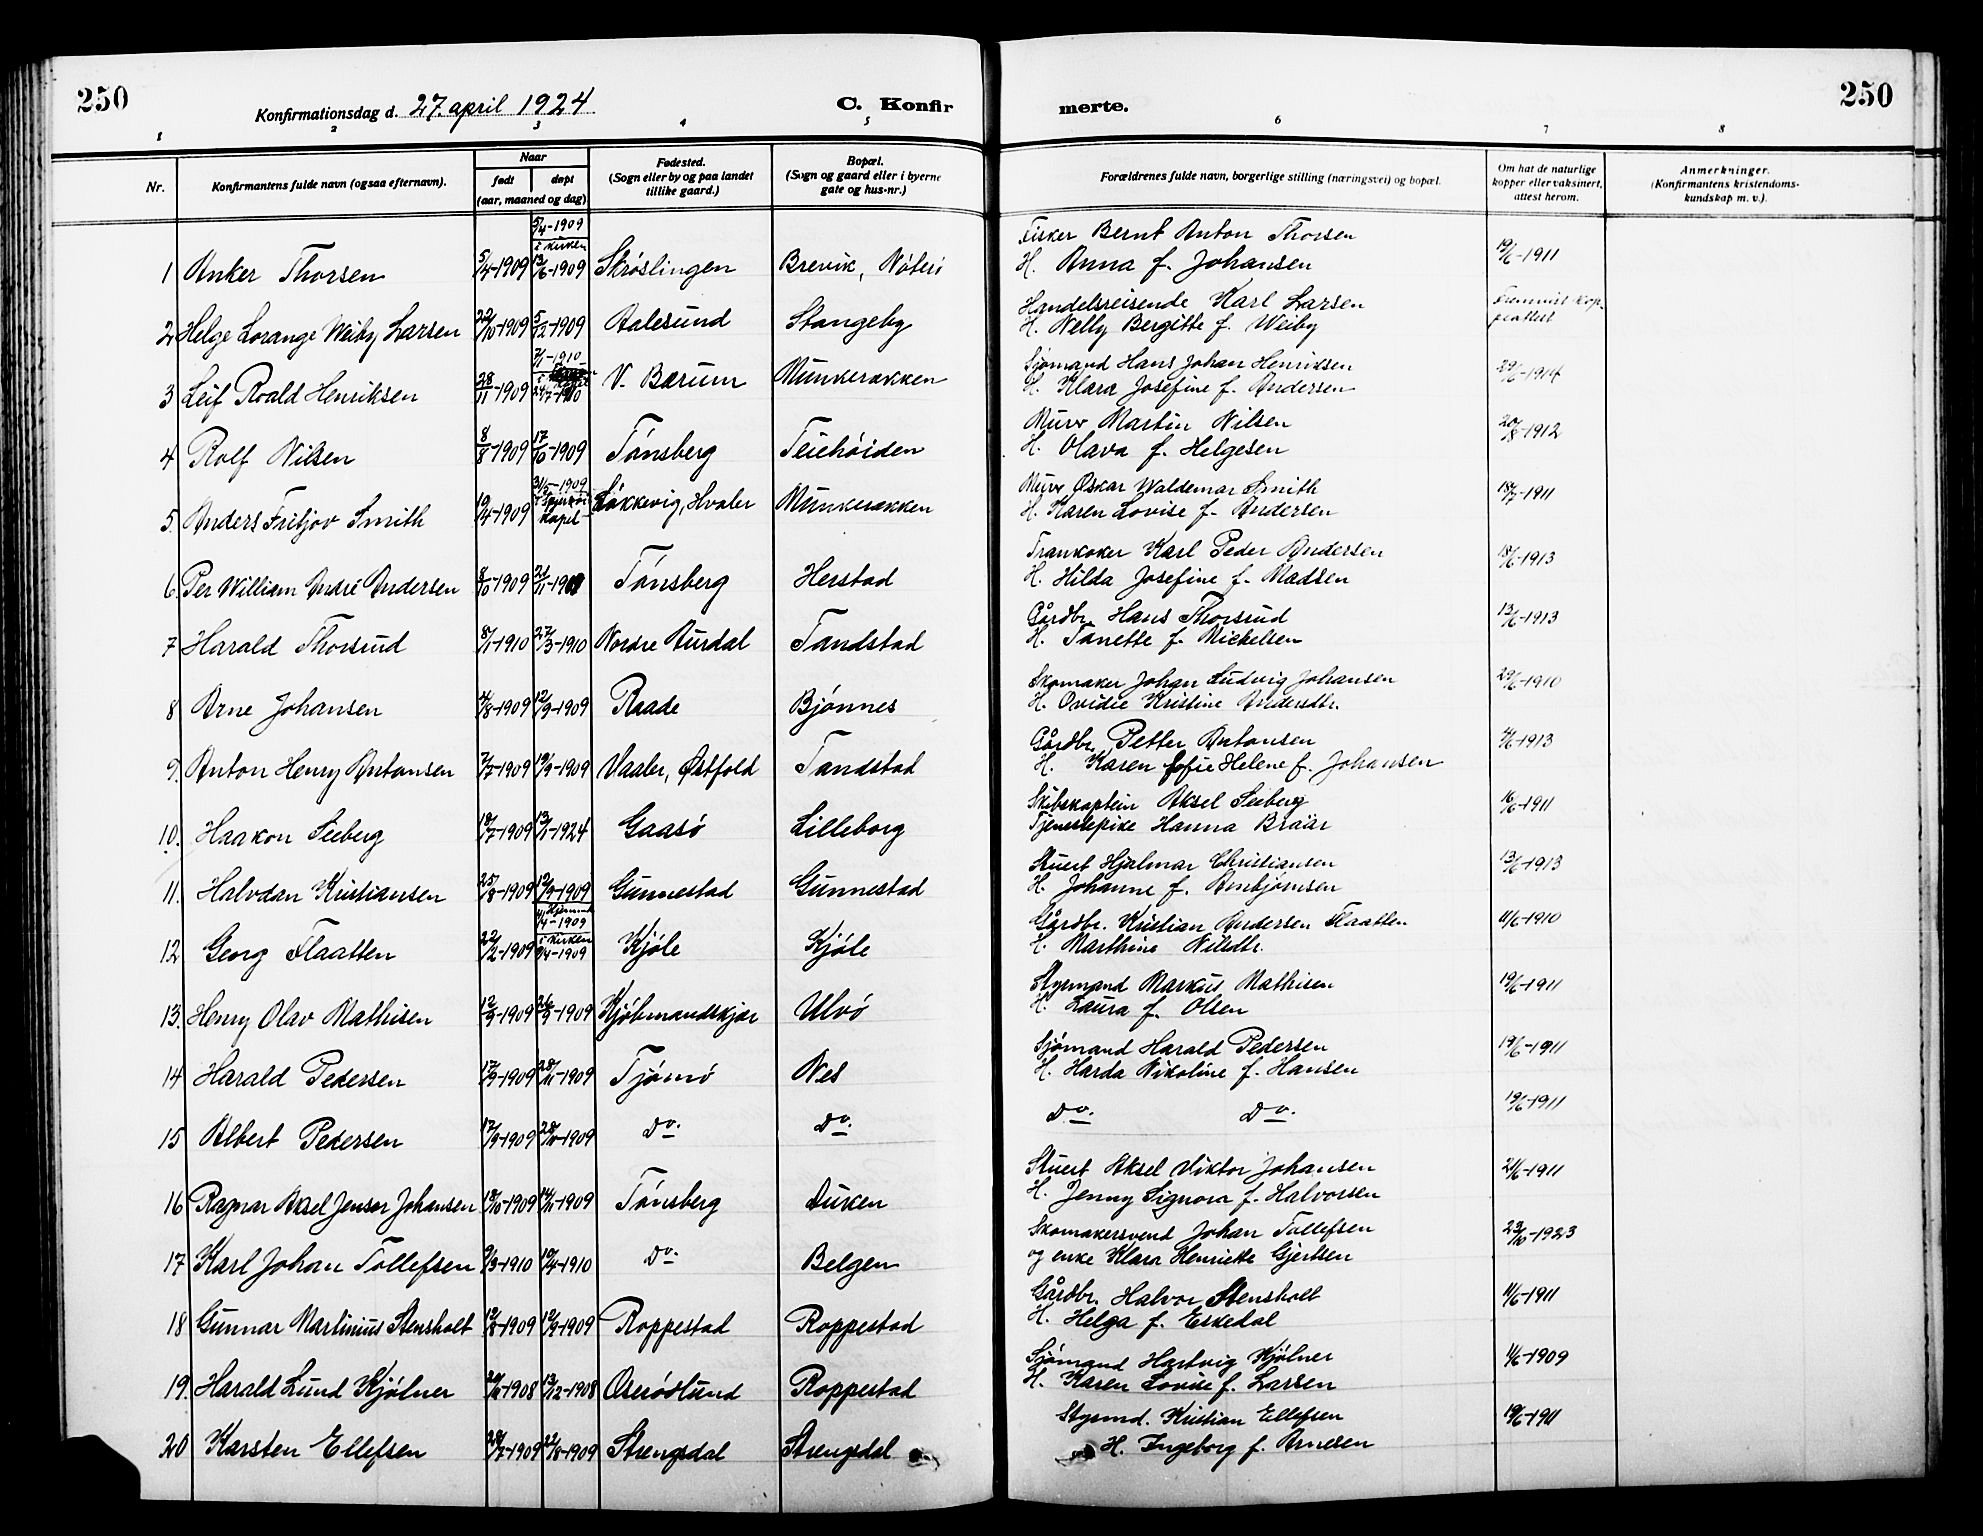 250
Konfirmationsdag d. 27. april 1924
C. Konfir
merte.
250
1 2 3 4 5 6 7 8
Nr.
Konfirmantens fulde navn (ogsaa efternavn).
Naar
født
døpt
(aar, maaned og dag)
Fødested.
(Sogn eller by og paa landet
tillike gaard.)
Bopæl.
(Sogn og gaard eller i byerne
gate og hus-nr.)
Forældrenes fulde navn, borgerlige stilling (næringsvei) og bopæl.
Om hat de naturlige
kopper eller vaksinert,
attest herom.
Anmerkninger.
(Konfirmantens kristendoms-
kundskap m. v.).
5/4-1909
i kirken
1 Anker Thorsen 5/4-1909 13/6-1909 Skrøslingen Brevik, Nøterø Fisker Bernt Anton Thorsen 19/6-1911
H. Anna f. Johansen
2 Helge Lorange Weiby Larsen 22/10-1909 5/12-1909 Aalesund Stangeby Handelsreisende Karl Larsen
H. Nelly Bergitte f. Weiby
7/1-1910
3 Leif Roald Henriksen 28/11-1909 24/7-1910 V. Bærum Munkerækken Sjømand Hans Johan Henriksen 29/6-1914
H. Klara Josefine f. Andersen
4 Rolf Nilsen 8/8-1909 17/10-1909 Tønsberg Teiehøiden Murer Martin Nilsen 20/8-1912
H. Olava f. Helgesen
31/5-1909
kapel
5. Anders Fritjov Smith 19/4-1909 Løkkevig, Hvaler Munkerækken Murer Oskar Waldemar Smith 18/7-1911
H. Karen Lovise f. Andersen
6. Per William André Andersen 8/10-1909 21/11-1909 Tønsberg Herstad Trankoker Karl Peder Andersen 18/6-1913
H. Hilda Josefine f. Madsen
7 Harald Thorsrud 8/1-1910 27/3-1910 Nordre Aurdal Tandstad Gårdbr. Hans Thorsrud 13/6-1913
H. Tanette f. Mickelsen
8 Arne Johansen 4/8-1909 12/9-1909 Raade Bjønnes Skomaker Johan Ludvig Johansen 29/6-1910
H. Ovidie Kristine Andersdtr.
9. Anton Henry Antonsen 7/7-1909 19/9-1909 Vaaler, Østfold Tandstad Gårdbr. Petter Antonsen 4/6-1913
H. Karen Sofie Helene f. Johansen
10. Haakon Seeberg 18/7-1909 13/1-1924 Gaasø Lilleborg Skibskaptein Aksel Seeberg 16/6-1911
Tjenestepike Hanna Braär
11. Halvdan Kristiansen 25/8-1909 19/9-1909 Gunnestad Gunnestad Stuert Hjalmar Christiansen 13/6-1913
H. Johanne f. Arnbjørnsen
4/4-1909
i kirken
12 Georg Flaatten 22/2-1909 9/4-1909 Kjøle Kjøle Gårdbr. Kristian Andersen Flaatten 11/6-1910
H. Marthine Nilsdtr.
13. Henry Olav Mathisen 12/9-1909 26/9-1909 Kjøbmandskjær Ulvø Styrmand Markus Mathisen 19/6-1911
H. Laura f. Olsen
14 Harald Pedersen 17/9-1909 28/11-1909 Tjømø Nes Sjømand Harald Pedersen 19/6-1911
H. Harda Nikoline f. Hansen
15 Albert Pedersen 17/9-1909 28/11-1909 Do. Do. Do. Do. 19/6-1911
16 Ragnar Aksel Jensor Johansen 18/10-1909 14/11-1909 Tønsberg Duken Stuert Aksel Viktor Johansen 21/6-1911
H. Jenny Signora f. Halvorsen
17 Karl Johan Tollefsen 9/3-1910 19/4-1910 Do. Belgen Skomakersvend Johan Tollefsen 23/10-1923
og enke Klara Henriette Gjertsen
18 Gunnar Martinius Stensholt 12/8-1909 19/9-1909 Roppestad Roppestad Gårdbr. Halvor Stensholt 11/6-1911
H. Helga f. Eskedal
19. Harald Lund Kjølner 13/12-1908 Oserødlund Roppestad Sjømand Hartvig Kjølner 4/6-1909
H. Karen Lovise f. Larsen
20 Karsten Ellefsen 28/7-1909 22/8-1909 Strengsdal Strengsdal Styrmd. Kristian Ellefsen 19/6-1911
H. Ingeborg f. Arnesen